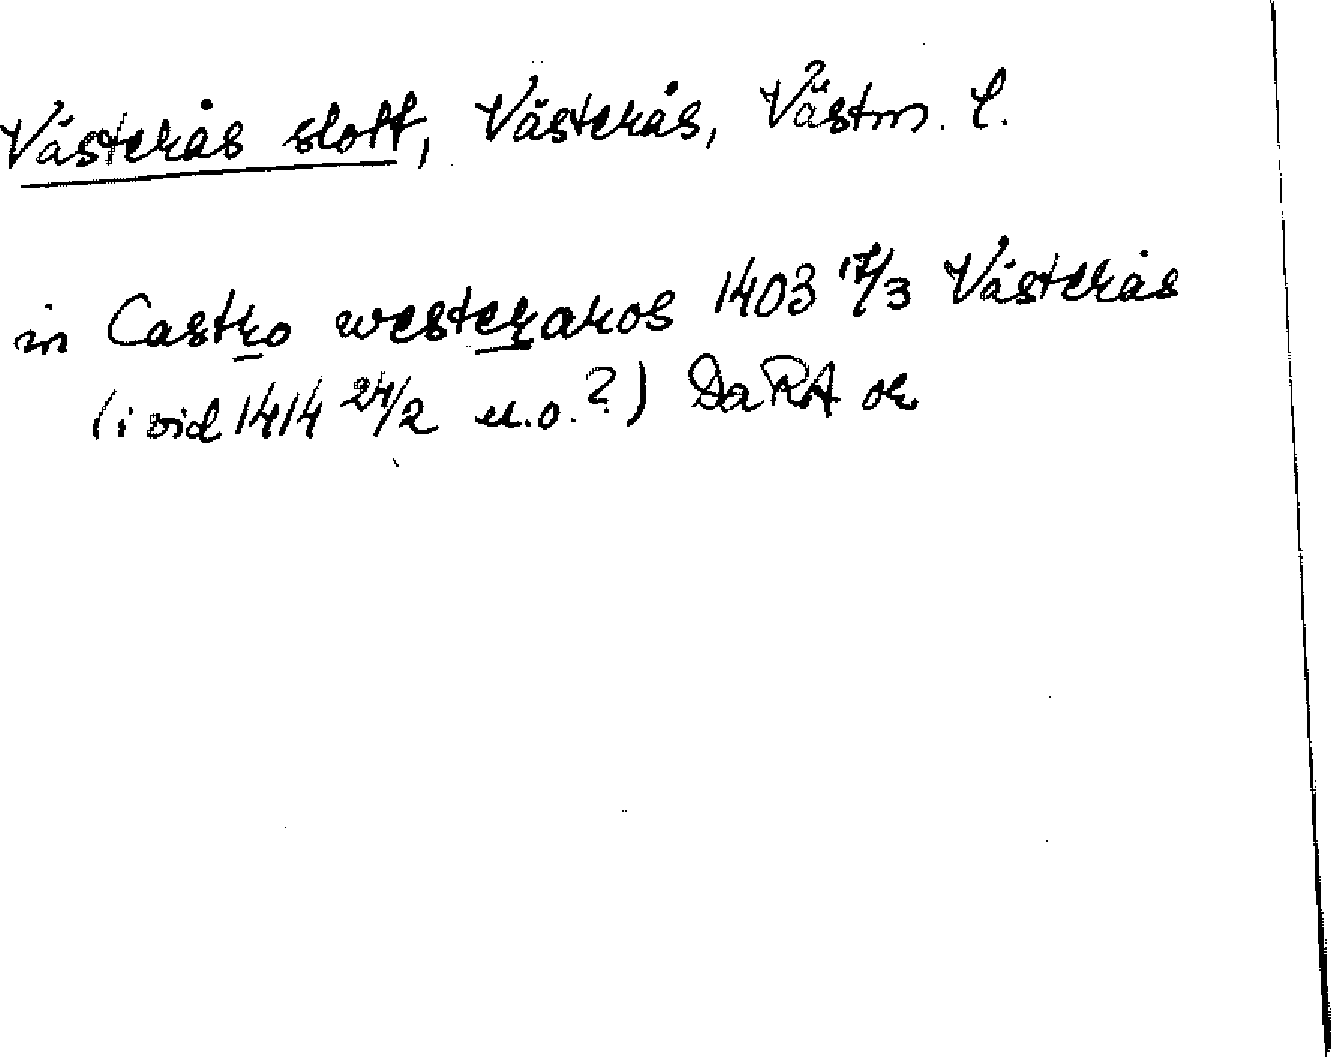 Västerås slott, Västerås, Västm. l.
in Castro westerakos 1403 17/3 Västerås
(i vid 1414 24/2 u.o.?) DaRA or